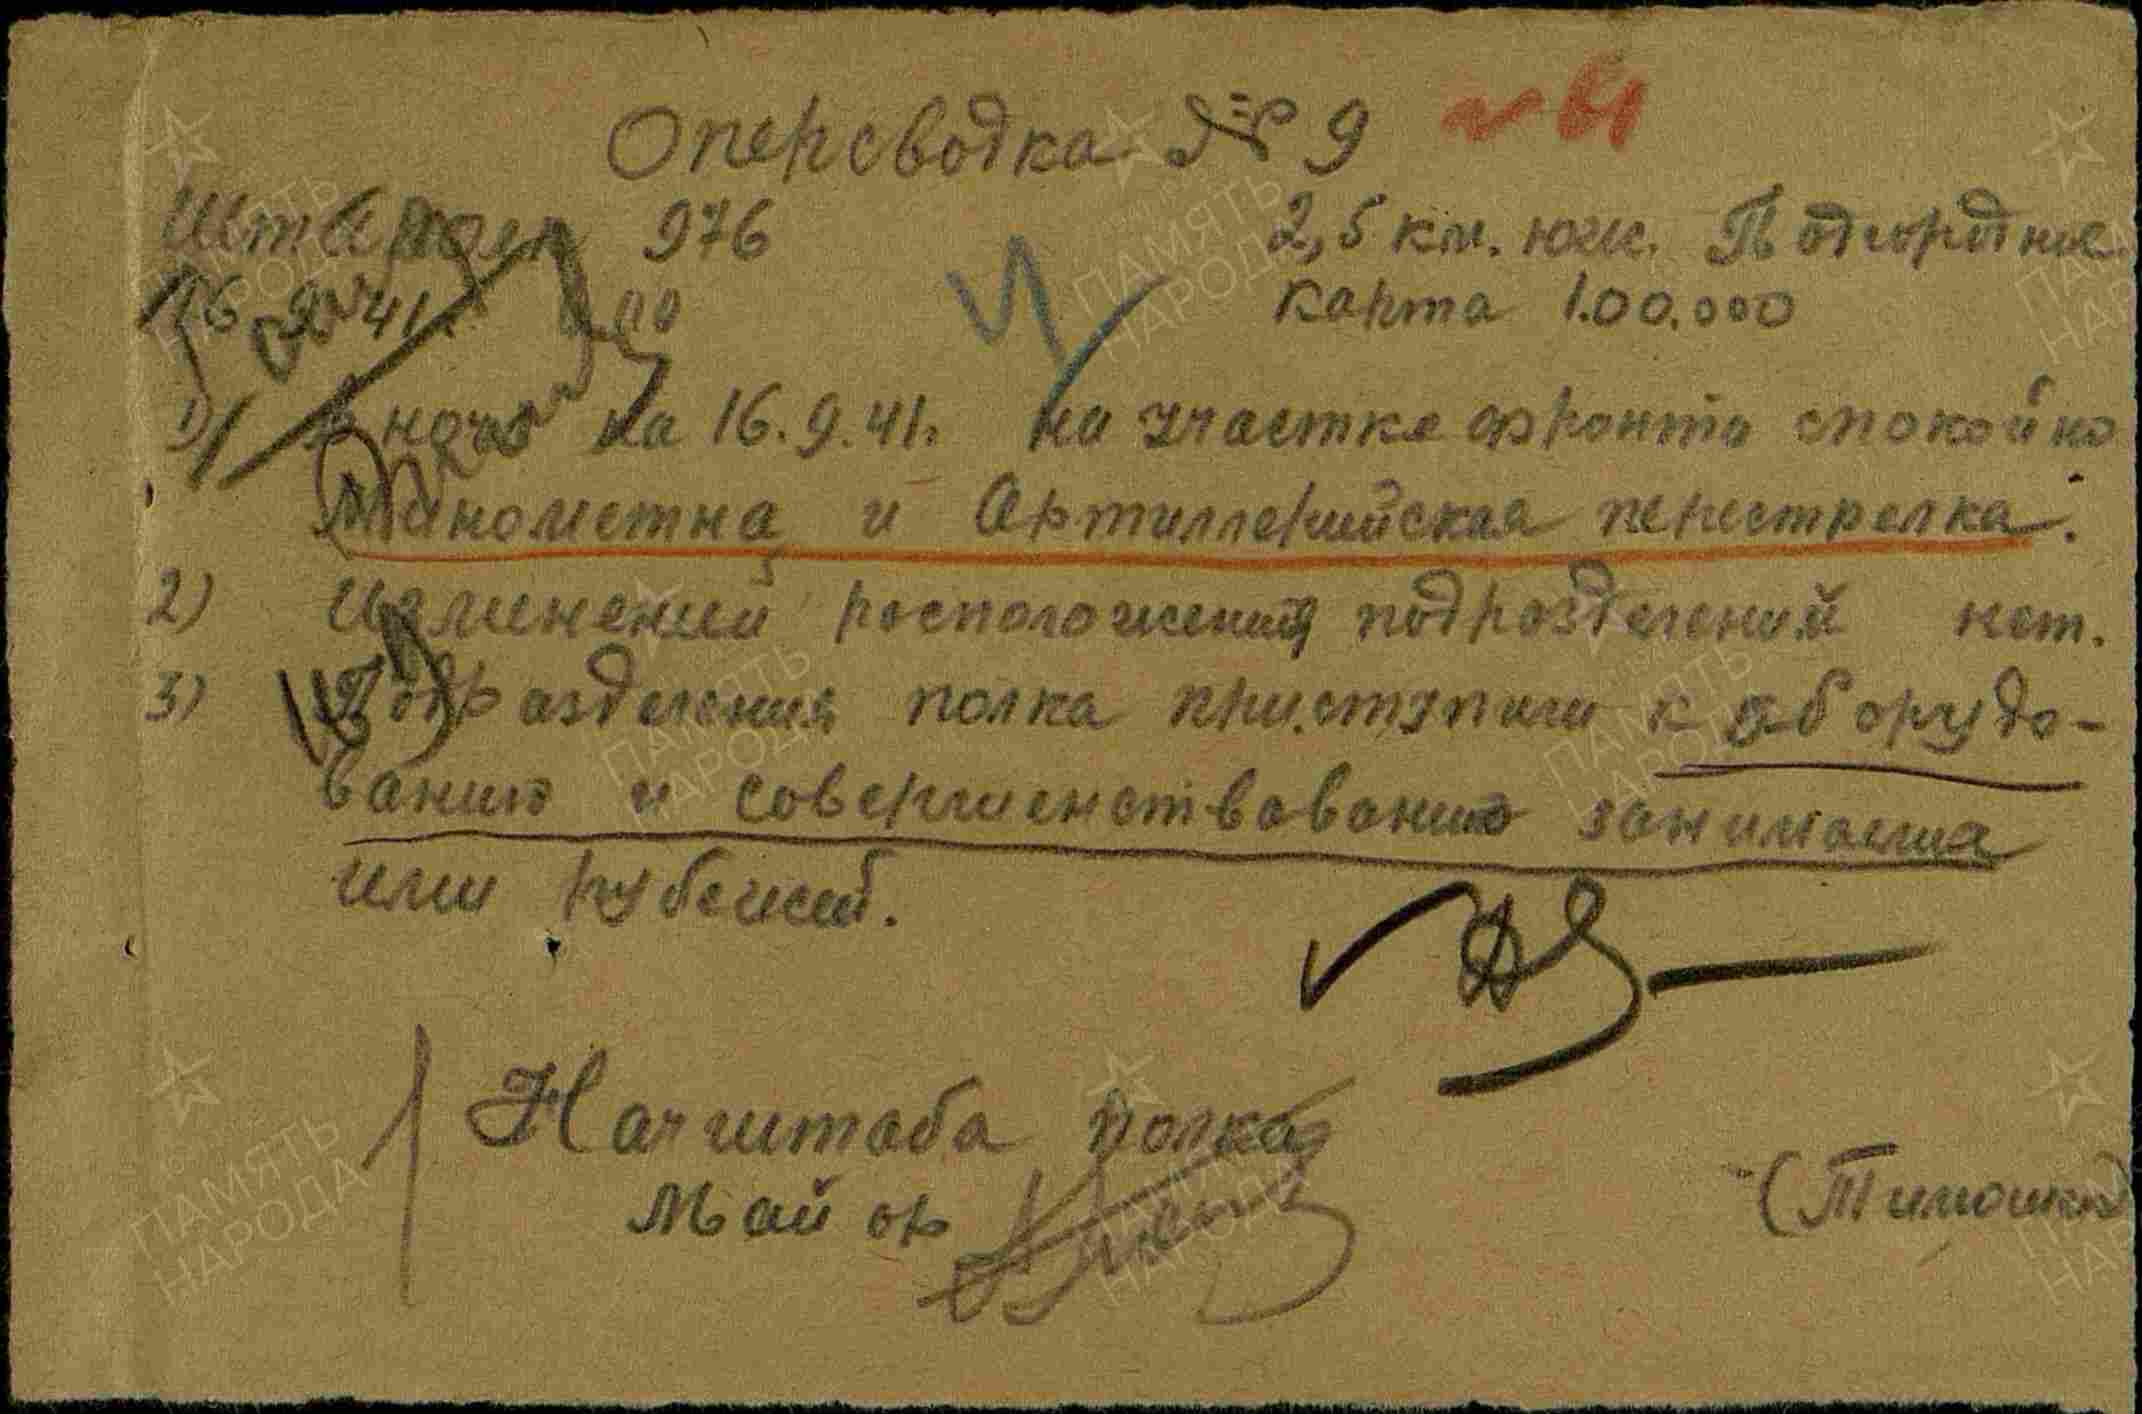 Оперсводка № 9 № 61
Штаполк 976 2,5 км. южн. Подгородное
16 9 41. 00 карта 1.00.000
1) В ночь на 16.9.41. на участке фронта спокойно
Минометна и Артиллерийская перестрелка.
2) Изминений росположений подрозделений нет.
3) Подразделения полка приступили к оборудо-
ванию и совершенствованию занимаемиа
ими рубежей.
Начштаба полка
Майор (Тимошко)
ПАМЯТЬ НАРОДА